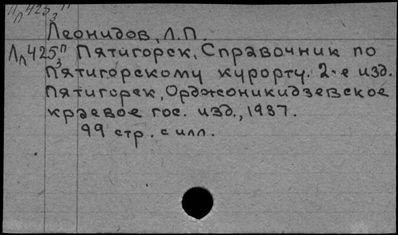 Л п 425 п 3
Леонидов, Л.П.
Л п 425 п 3 Пятигорск. Справочник по
Пятигорскому курорту. 2-е изд.
Пятигорск, Орджоникидзевское
краевое гос. изд., 1937.
99 стр. с илл.